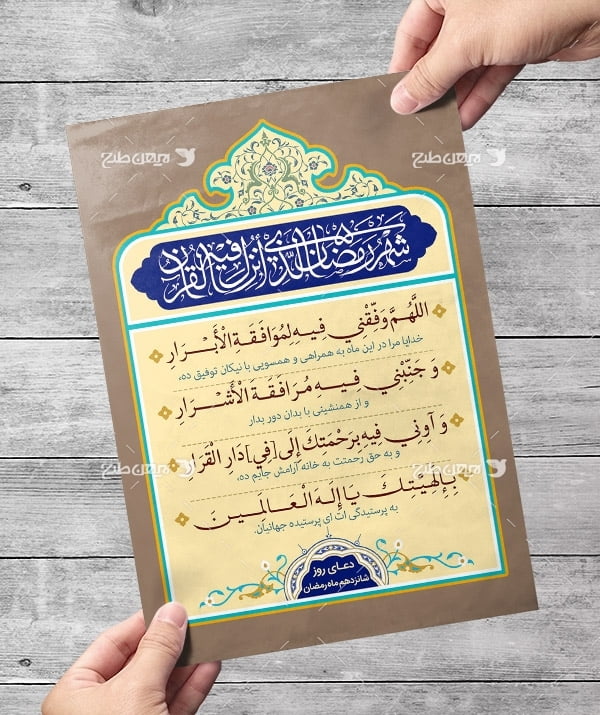 شهر رمضان الذي أنزل فيه القرآن
اللَّهُمَّ وَفِّقْنِي فِيهِ لِمُوَافَقَةِ الْأَبْرَارِ
خدایا مرا در این ماه به همراهی و همسویی با نیکان توفیق ده،
وَ جَنِّبْنِي فِيهِ مُرَافَقَةَ الْأَشْرَارِ
و از همنشینی با بدان دور بدار
وَ آوِنِي فِيهِ بِرَحْمَتِكَ إِلَى [فِي] دَارِ الْقَرَارِ
و به حق رحمتت به خانه آرامش جایم ده،
بِإِلَهِيَّتِكَ يَا إِلَهَ الْعَالَمِينَ
به پرستیدگی ات ای پرستیده جهانیان.
دعای روز
شانزدهم ماه رمضان
میهن طرح
میهن طرح
میهن طرح
میهن طرح